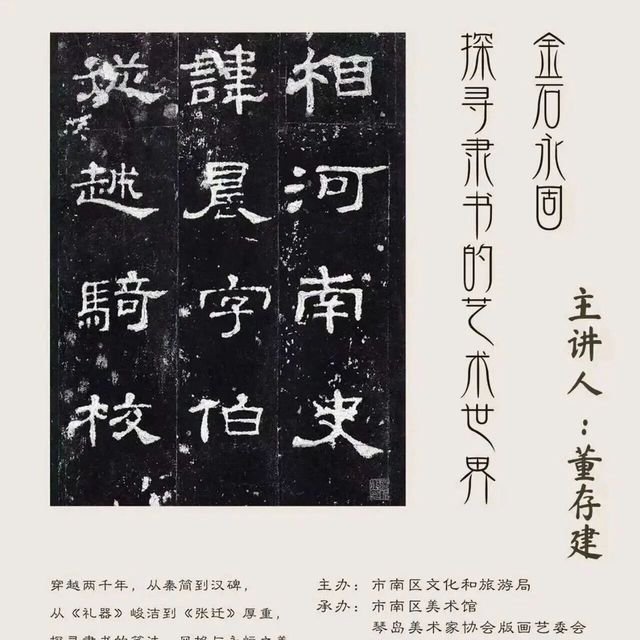 金石永固
探寻隶书的艺术世界
主讲人：董存建
相河南史
諱晨字伯
從越騎校
穿越两千年，从秦简到汉碑，
从《礼器》峻洁到《张迁》厚重，
主办：市南区文化和旅游局
承办：市南区美术馆
琴岛美术家协会版画艺委会